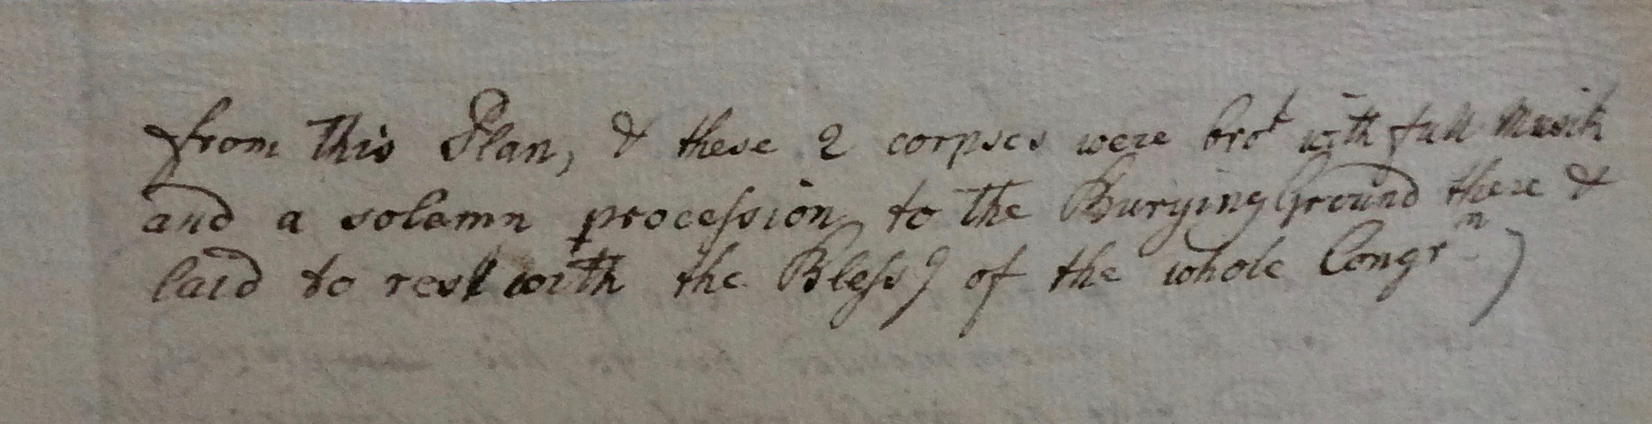 from this Plan, & these 2 corpses were brot with full Musik
and a solemn procession to the Burying Ground there &
laid to rest with the Blessg of the whole Congrn)